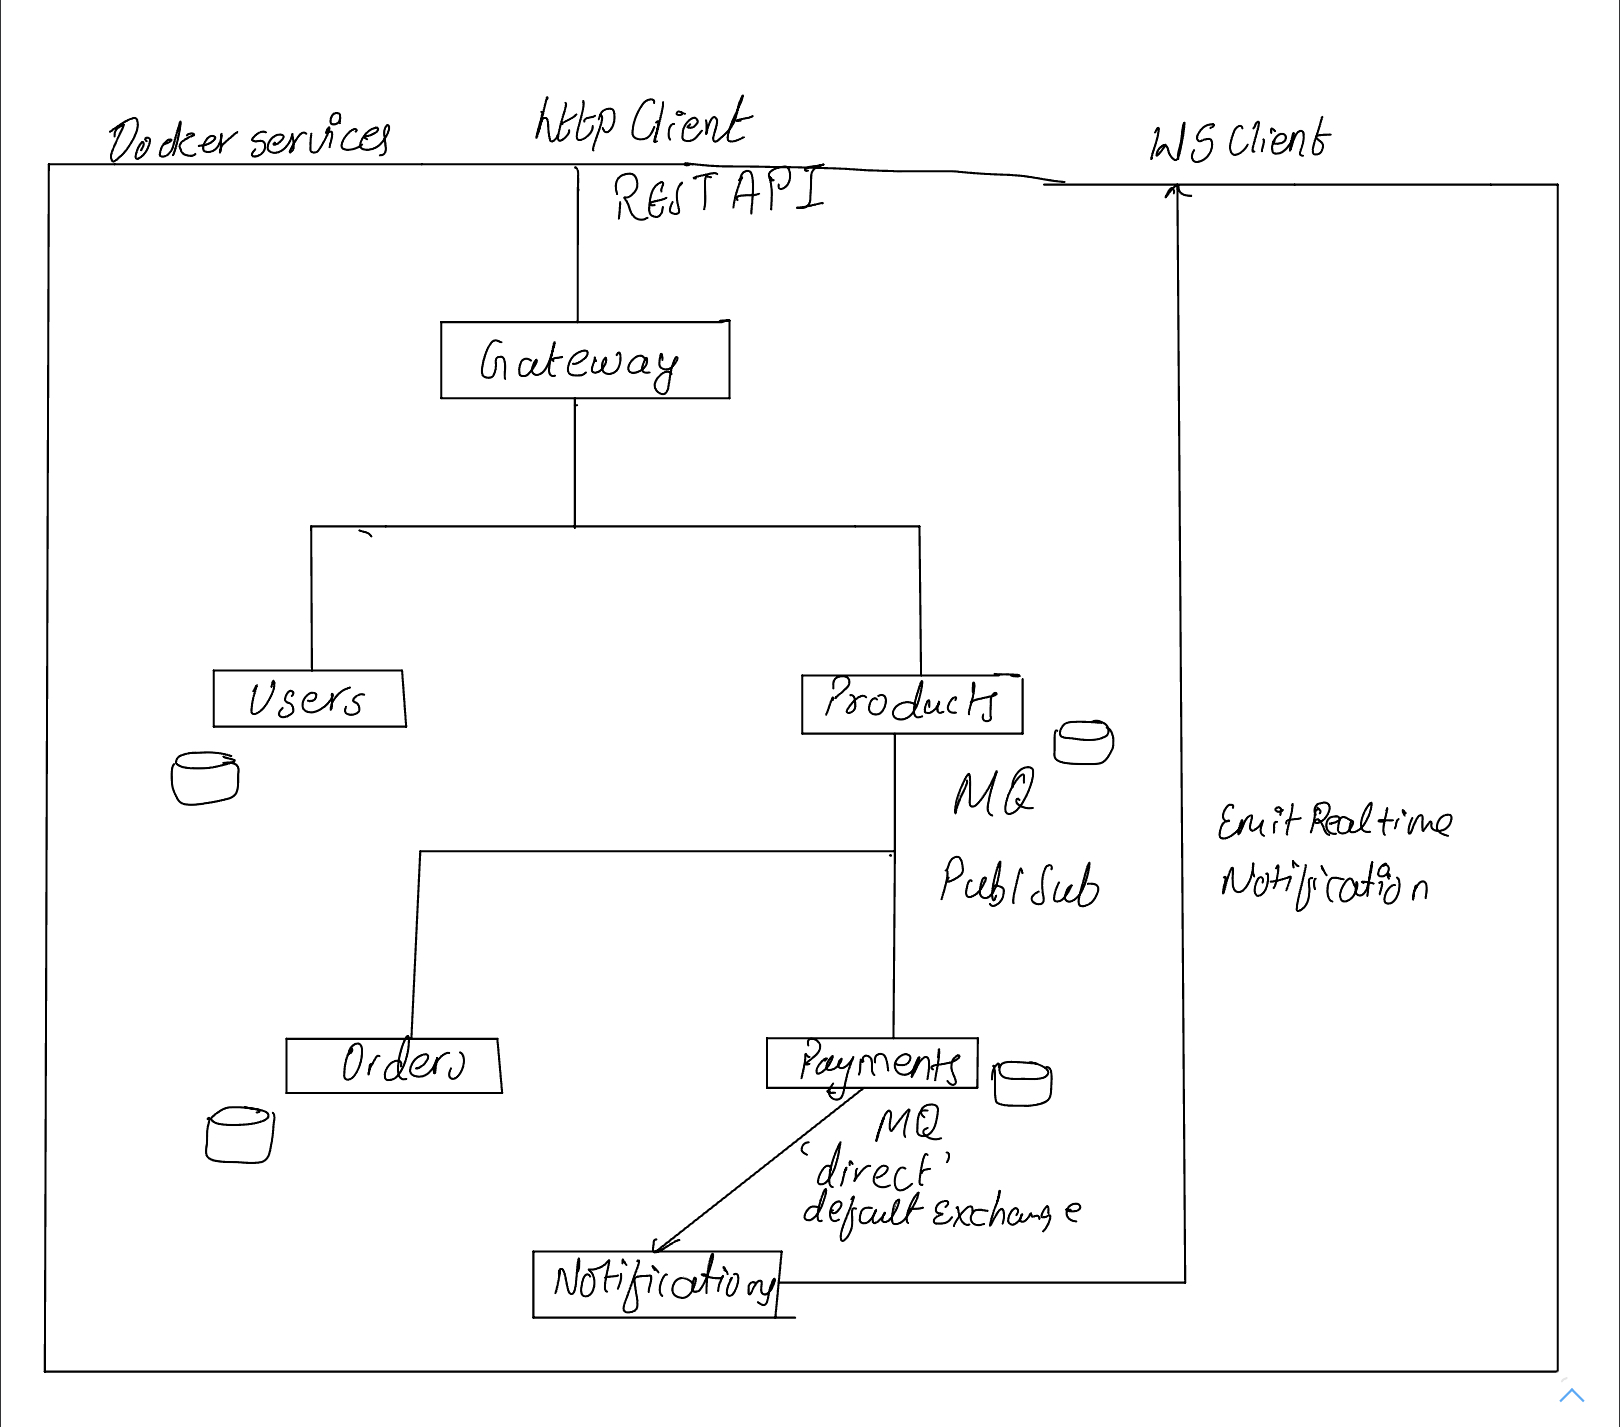 Docker services
http Client
WS Client
REST API
Gateway
Users
Products
MQ
Pub/Sub
Emit Realtime
Notification
Orders
Payments
MQ
'direct'
default Exchange
Notifications